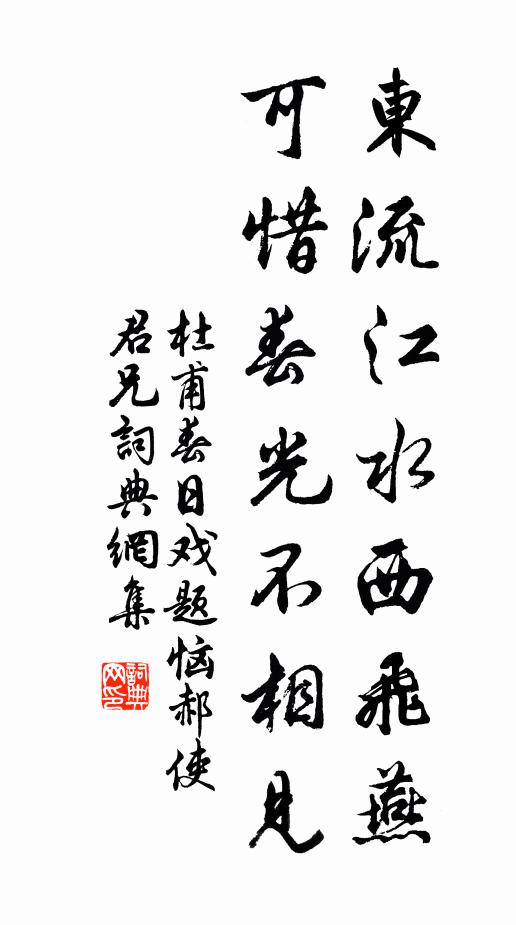 東流江水西飛燕
可惜春光不相見
杜甫春日戏題恼郝使
君兄詞典網集
詞典网印